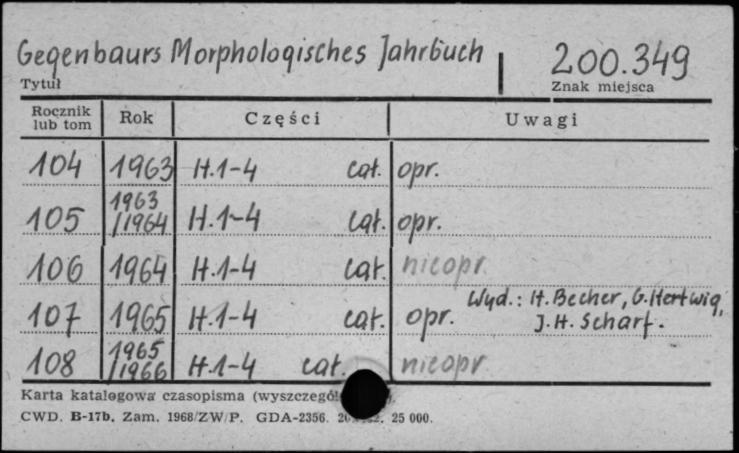 Gegenbaurs Morphologisches Jahrbuch 200.349
Tytuł Znak miejsca
Rocznik lub tom Rok Części Uwagi
104 1963 H.1-4 cał. opr.
105 1963/1964 H.1-4 cał. opr.
106 1964 H.1-4 cał. nieopr
107 1965 H.1-4 cał. opr. Wyd.: H. Becher, G. Hertwig, J.H. Scharf.
108 1965/1966 H.1-4 cał. nieopr
Karta katalogowa czasopisma
CWD. B-17b. Zam. 1968/ZW/P. GDA-2356. 25 000.